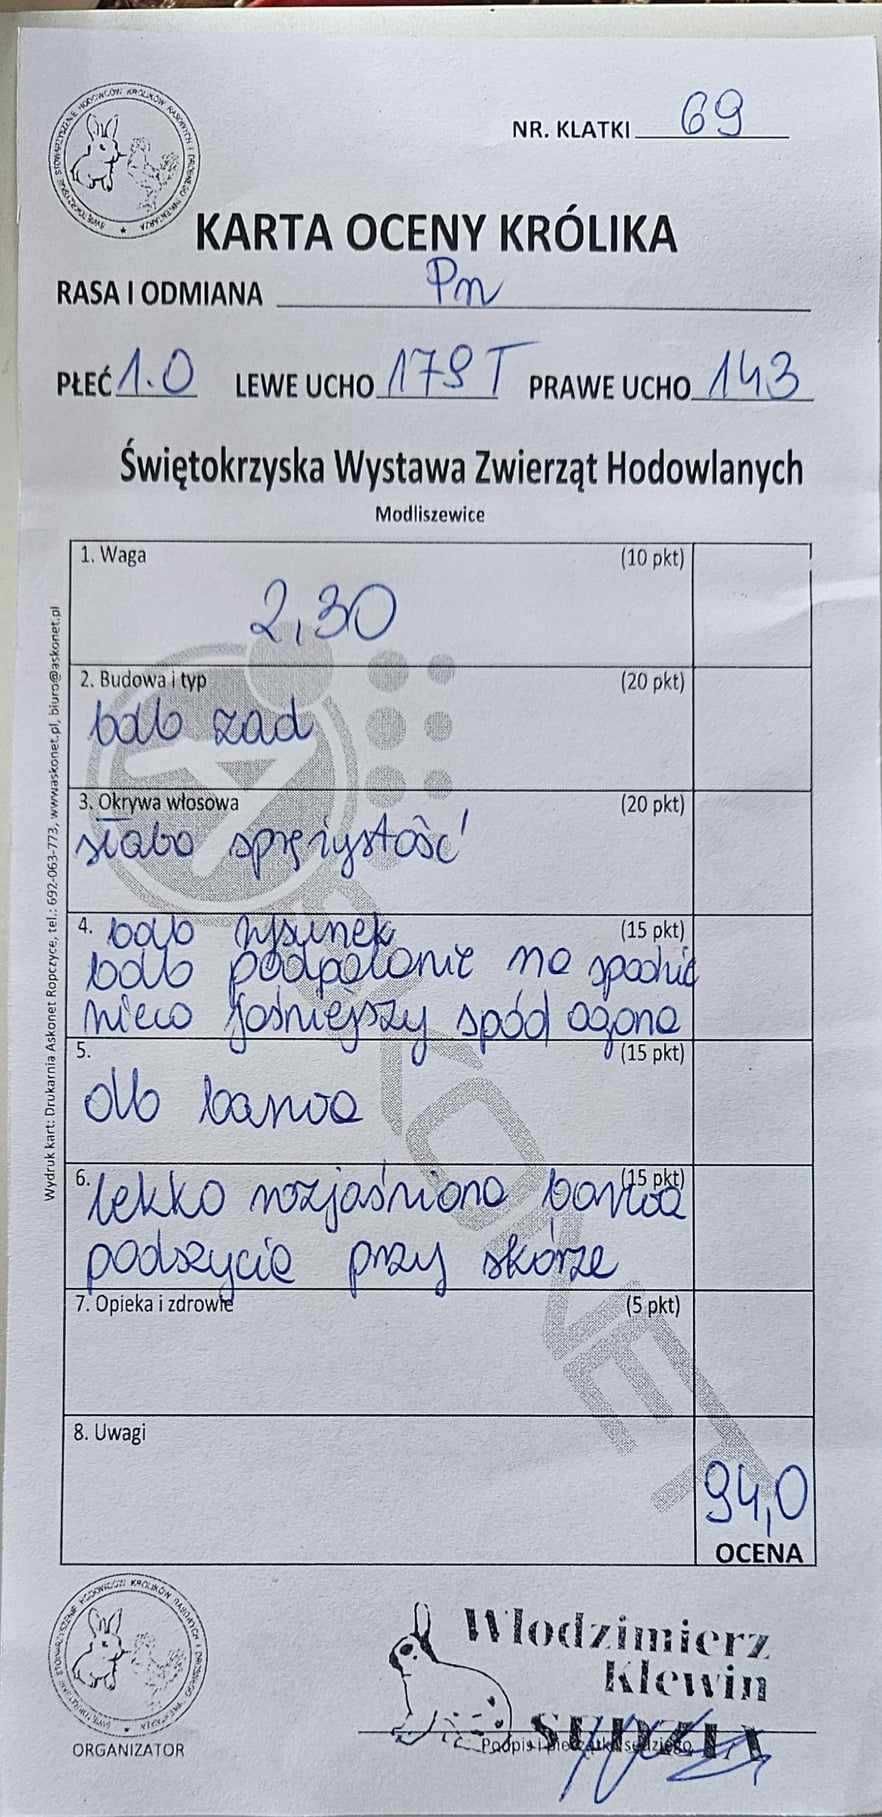 ŚWIĘTOKRZYSKIE STOWARZYSZENIE HODOWCÓW KRÓLIKÓW RASOWYCH I DROBNEGO INWENTARZA
NR. KLATKI 69
KARTA OCENY KRÓLIKA
RASA I ODMIANA Pn
PŁEĆ 1.0 LEWE UCHO 179T PRAWE UCHO 143
Świętokrzyska Wystawa Zwierząt Hodowlanych
Modliszewice
1. Waga (10 pkt)
2,30
2. Budowa i typ (20 pkt)
bdb zad
3. Okrywa włosowa (20 pkt)
słaba sprężystość
4. bdb rysunek (15 pkt)
bdb podpalanie na spodnie
nieco jaśniejszy spód ogona
5. (15 pkt)
db barwa
6. (15 pkt)
lekko rozjaśniona barwa
podszycie przy skórze
7. Opieka i zdrowie (5 pkt)
8. Uwagi
94,0
OCENA
Wydruk kart: Drukarnia Askonet Ropczyce, tel.: 692-063-773, www.askonet.pl, biuro@askonet.pl
ASKONET
Włodzimierz
Klewin
SĘDZIA
Podpis i pieczątka sędziego
ORGANIZATOR